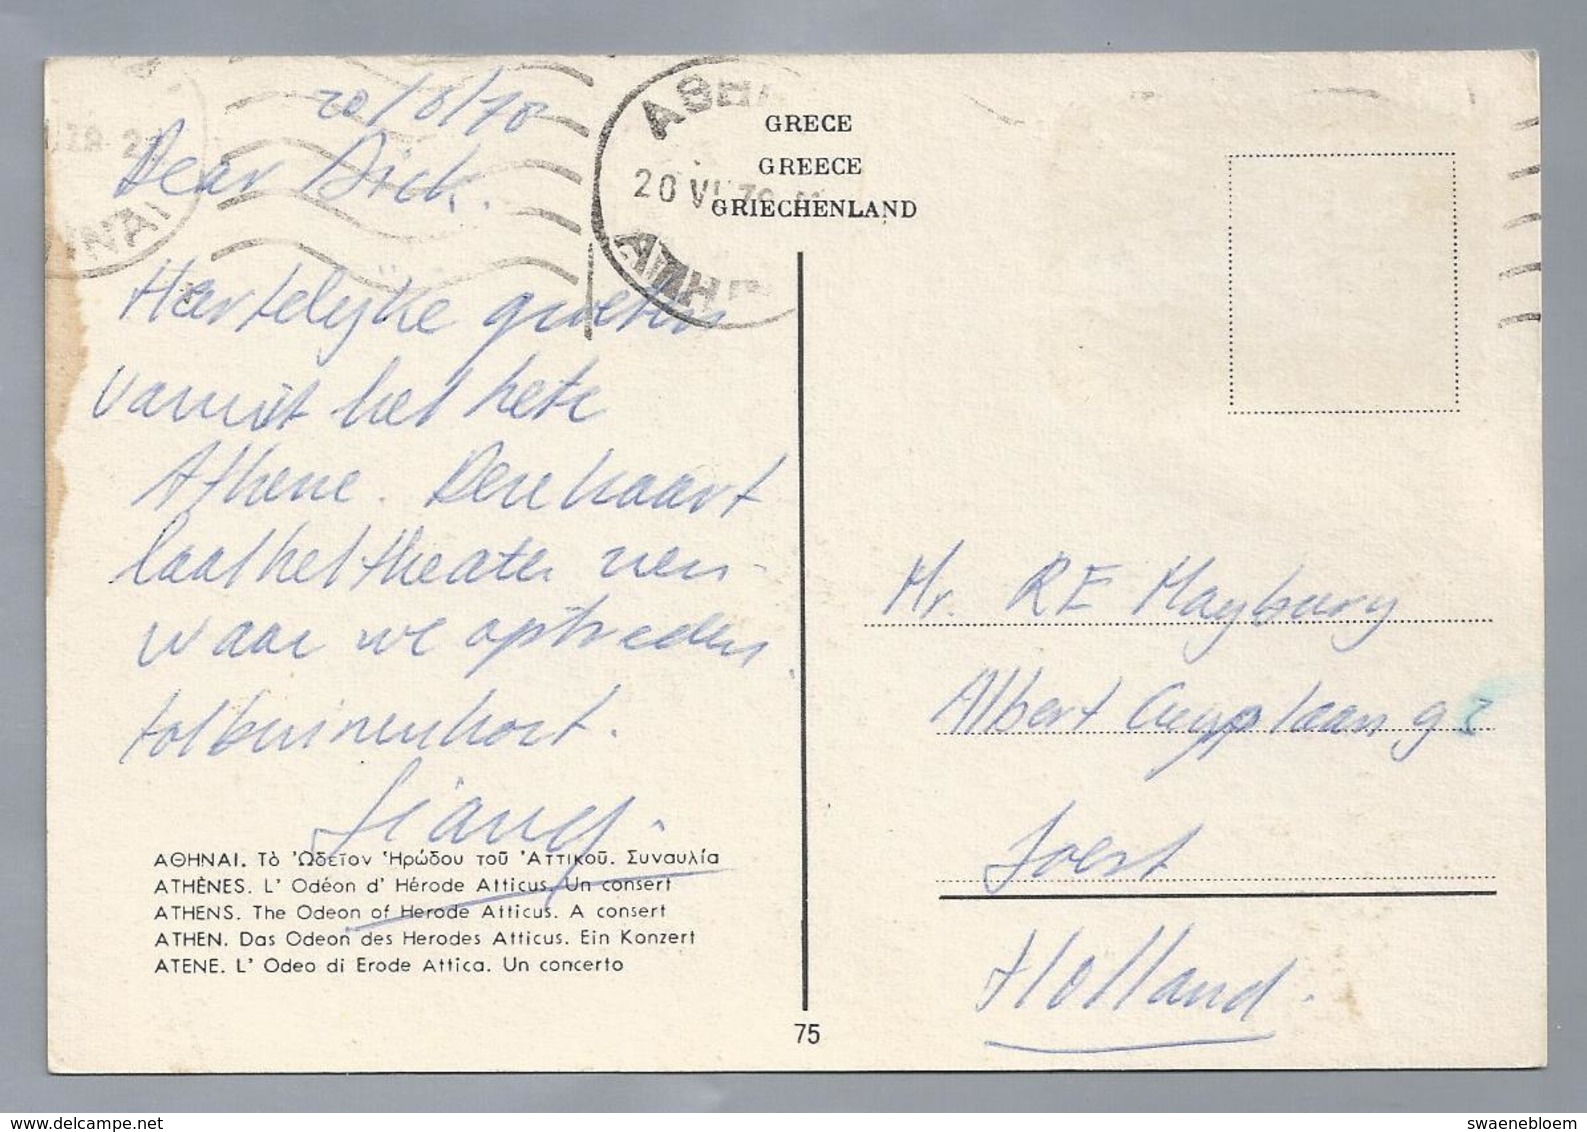 20/6/70
Dear Dick.
Hartelijke groeten
vanuit het hete
Athene. Deze kaart
laat het theater zien
waar we optreden
tot binnenkort.
ΑΘΗΝΑΙ. Τὸ Ὠδεῖον Ἡρώδου τοῦ Ἀττικοῦ. Συναυλία
ATHÈNES. L' Odéon d' Hérode Atticus. Un consert
ATHENS. The Odeon of Herode Atticus. A consert
ATHEN. Das Odeon des Herodes Atticus. Ein Konzert
ATENE. L' Odeo di Erode Attica. Un concerto
75
GRECE
GREECE
GRIECHENLAND
20 VI
Mr. RE Maybury
Albert Cuyplaan 92
Soest
Holland.
www.delcampe.net
swaenebloem